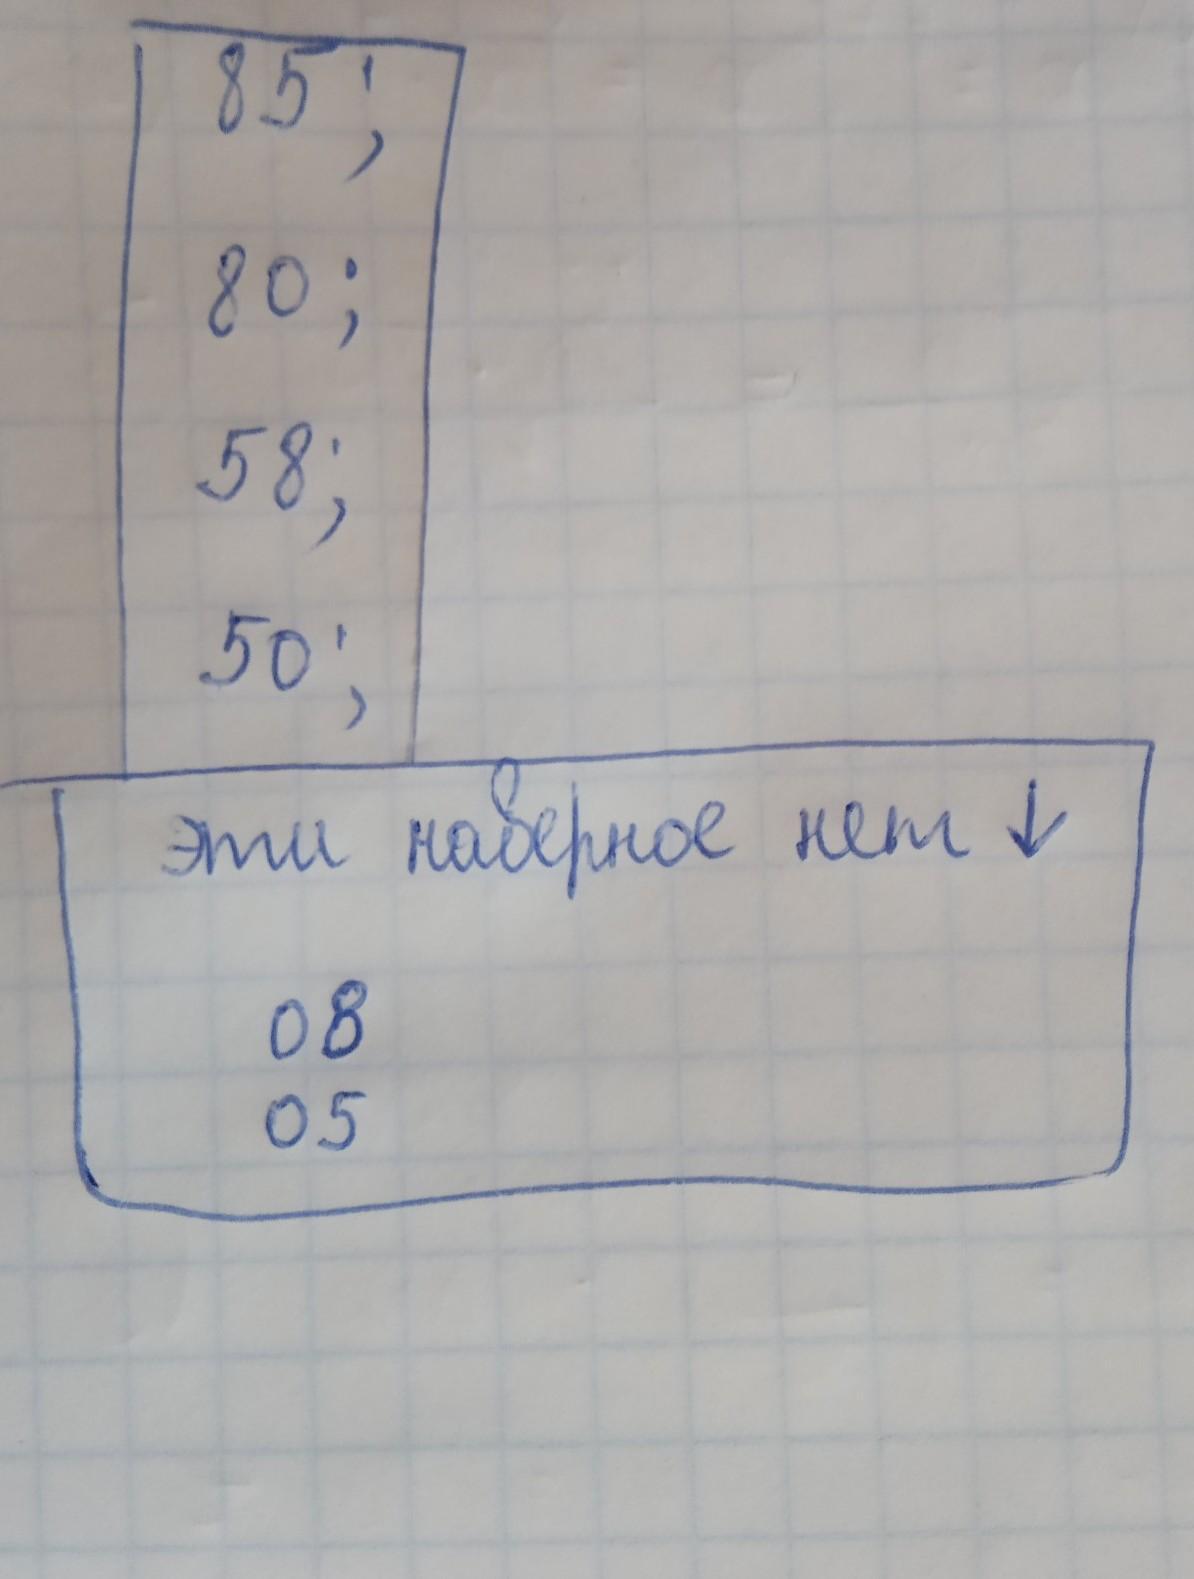 85;
80;
58;
50;
эти наверное нет ↓
08
05